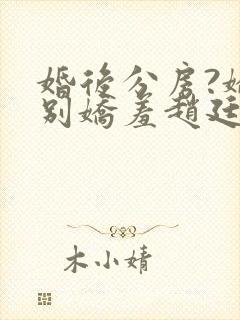 婚後分房?
別嬌羞趙廷
木小婧